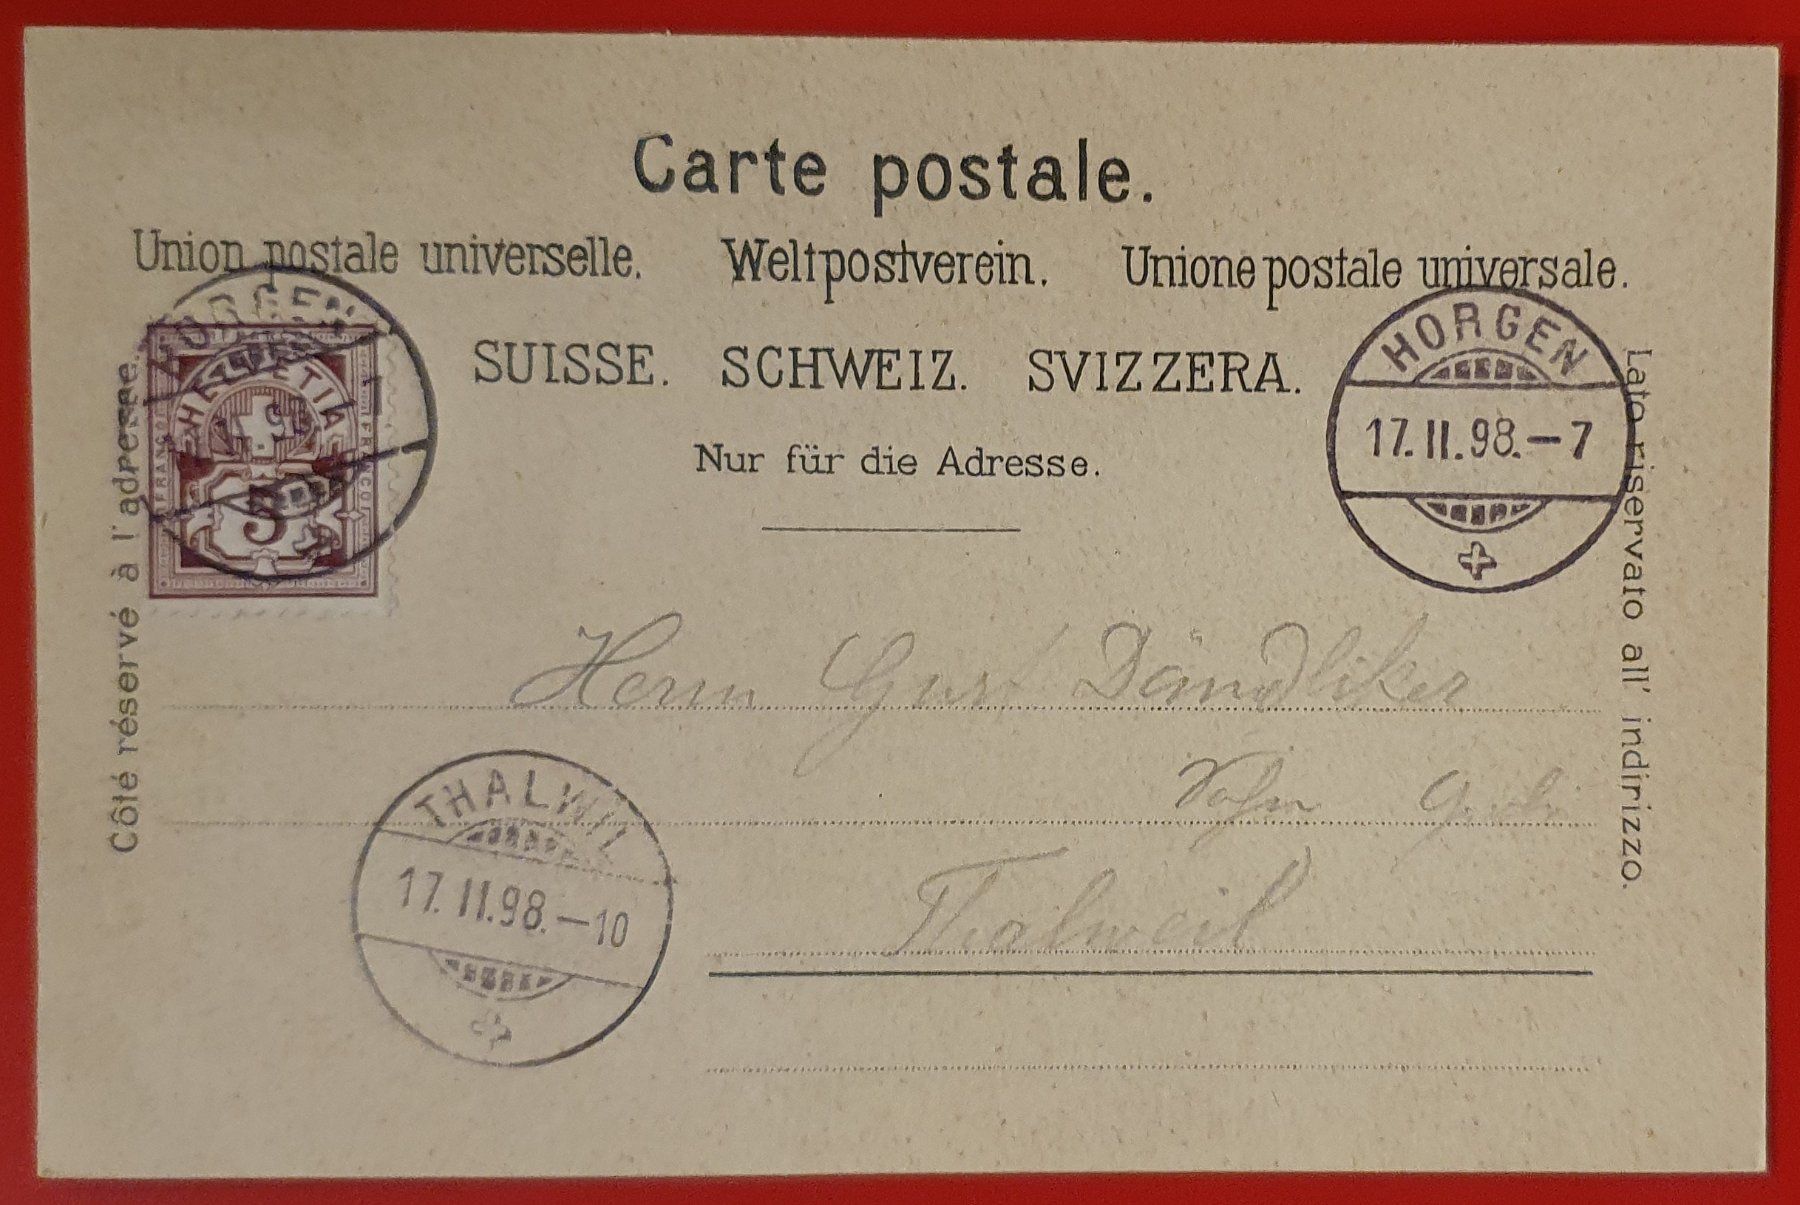 Carte postale.
Union postale universelle. Weltpostverein. Unione postale universale.
SUISSE. SCHWEIZ. SVIZZERA.
Nur für die Adresse.
Côté réservé à l'adresse.
Lato riservato all' indirizzo.
HORGEN
HELVETIA
FRANCO
FRANCO
5
HORGEN
17.II.98.–7
Herrn Gust Dändliker
Thalweil
THALWIL
17.II.98.–10